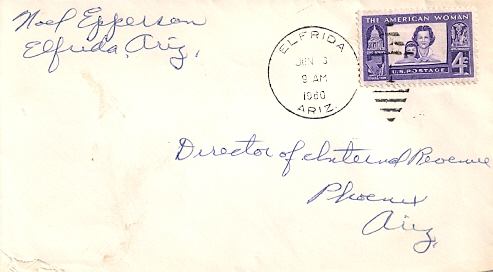 Noel Epperson
Elfrida, Ariz.
ELFRIDA
JUN 3
9 AM
1960
ARIZ.
THE AMERICAN WOMAN
U.S. POSTAGE
4¢
Director of Internal Revenue
Phoenix
Ariz.